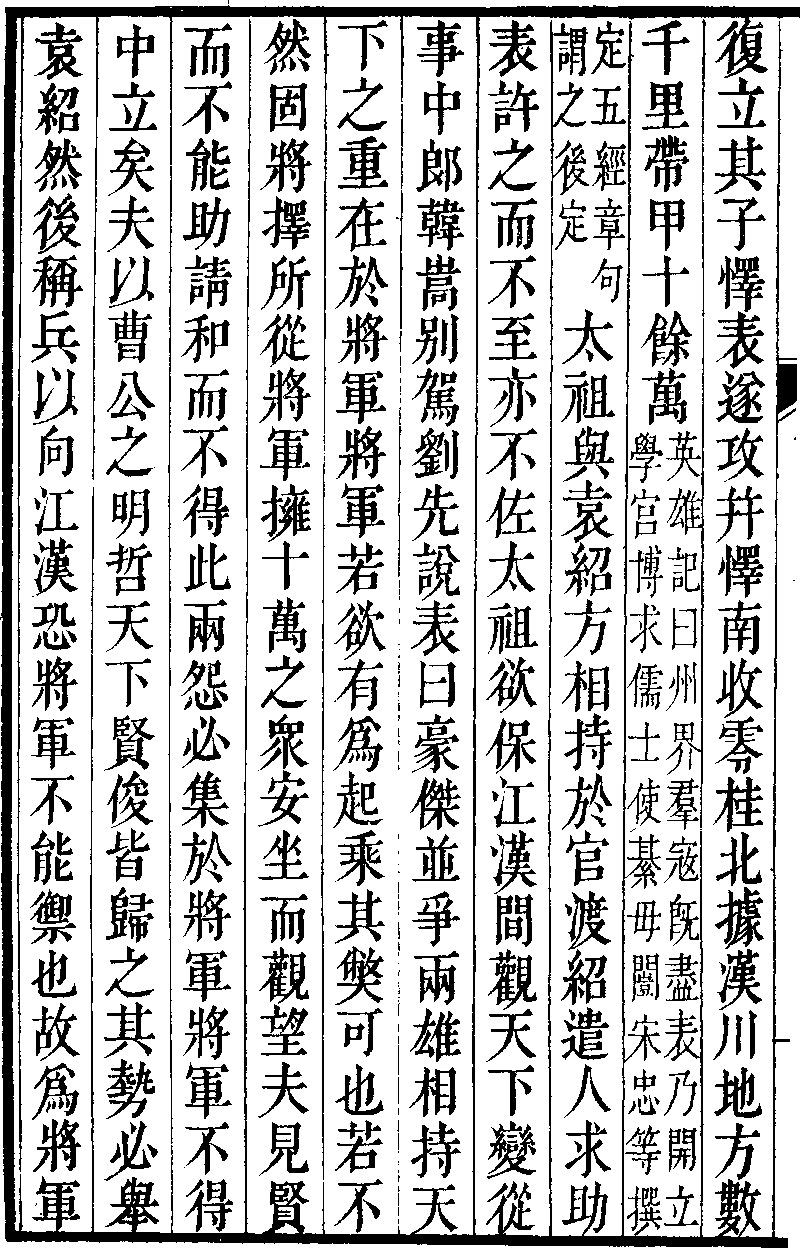 復立其子懌表遂攻幷懌南收零桂北據漢川地方數
千里帶甲十餘萬英雄記曰州界羣寇既盡表乃開立學官博求儒士使綦毋闓宋忠等撰
定五經章句謂之後定太祖與袁紹方相持於官渡紹遣人求助
表許之而不至亦不佐太祖欲保江漢間觀天下變從
事中郎韓嵩别駕劉先說表曰豪傑並爭兩雄相持天
下之重在於將軍將軍若欲有爲起乘其獘可也若不
然固將擇所從將軍擁十萬之衆安坐而觀望夫見賢
而不能助請和而不得此兩怨必集於將軍將軍不得
中立矣夫以曹公之明哲天下賢俊皆歸之其勢必舉
袁紹然後稱兵以向江漢恐將軍不能禦也故爲將軍